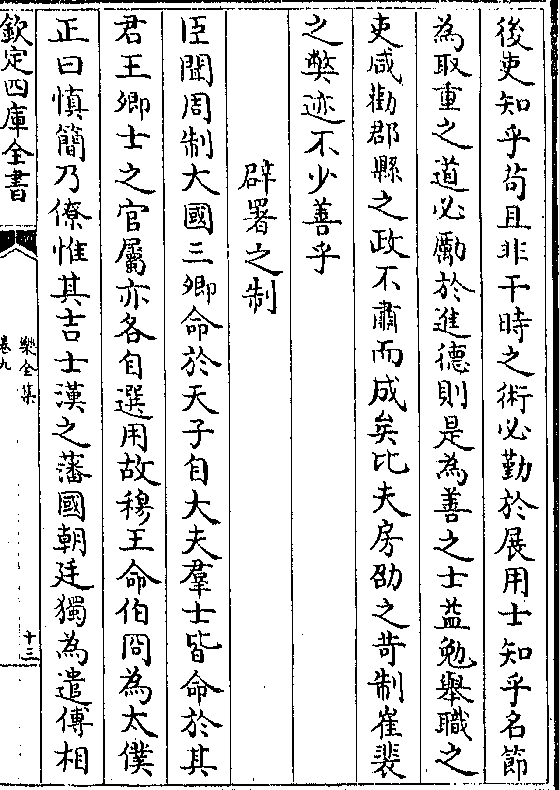 後吏知乎苟且非干時之術必勤於展用士知乎名節
為取重之道必勵於進德則是為善之士益勉舉職之
吏咸勸郡縣之政不肅而成矣比夫房劭之苛制崔裴
之弊迹不少善乎
辟署之制
臣聞周制大國三卿命於天子自大夫羣士皆命於其
君王卿士之官屬亦各自選用故穆王命伯冏為太僕
正曰慎簡乃僚惟其吉士漢之藩國朝廷獨為遣傅相
欽定四庫全書
樂全集
卷九
十三